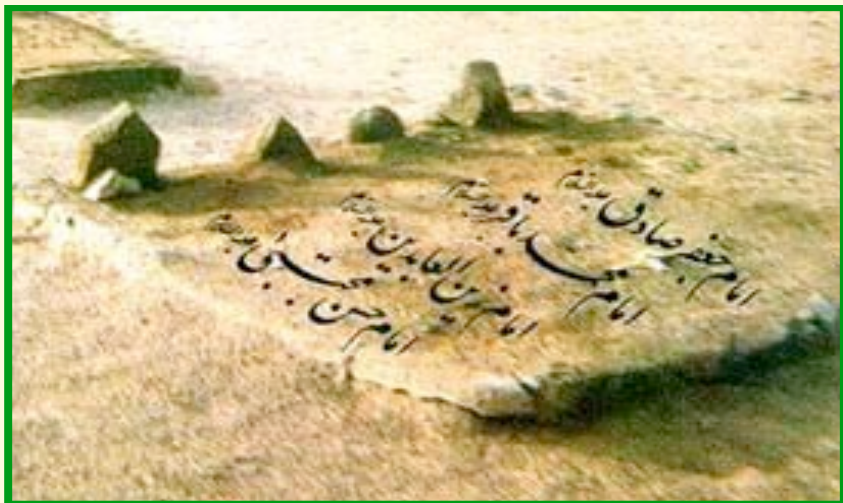 امام جعفر صادق علیه السلام
امام محمد باقر علیه السلام
امام زین العابدین علیه السلام
امام حسن مجتبی علیه السلام